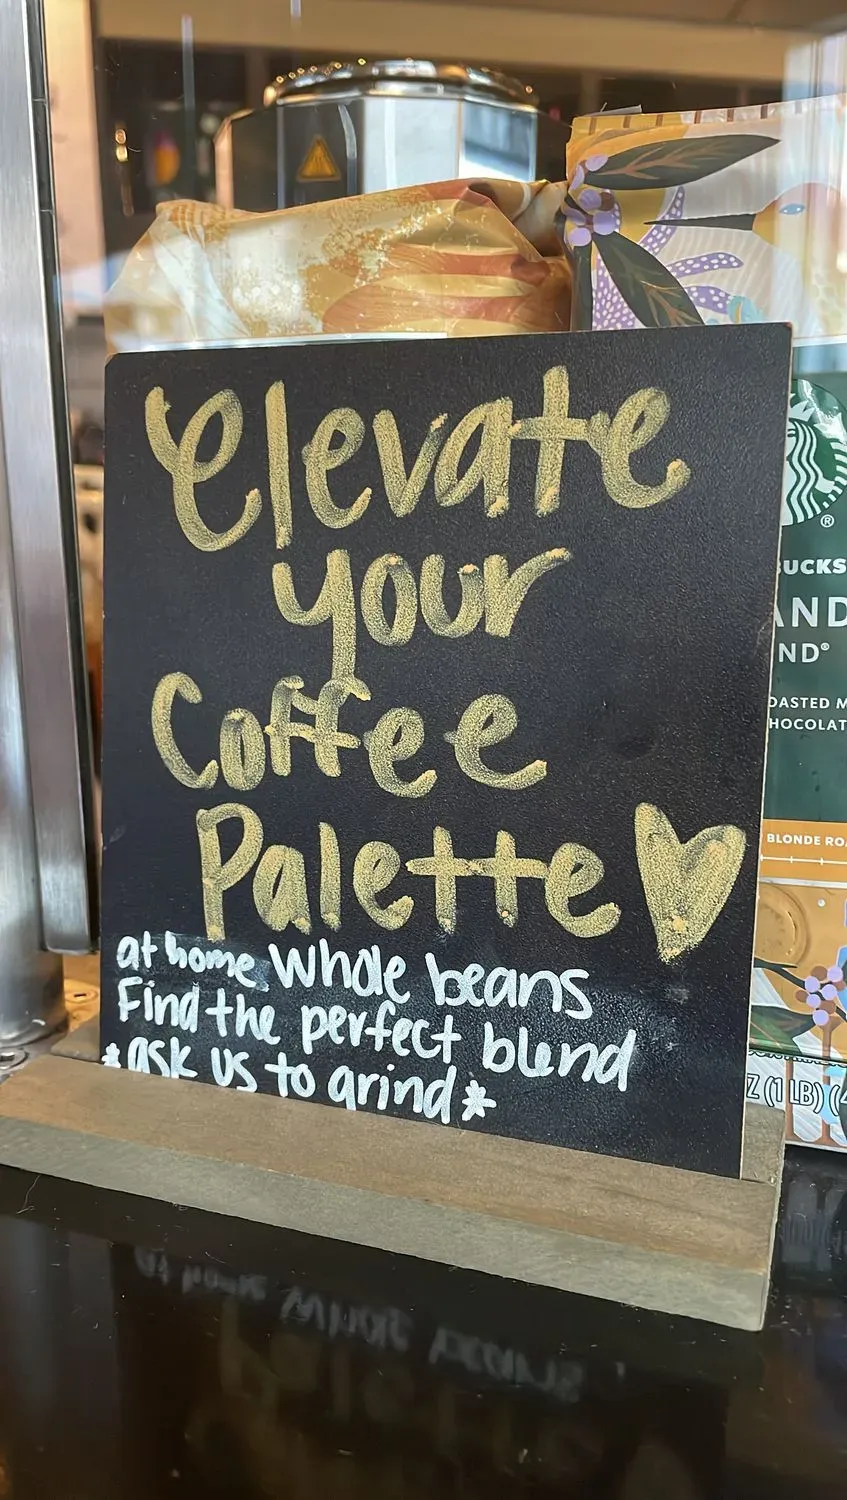 Elevate
your
Coffee
Palette
at home whole beans
Find the perfect blend
*ask us to grind*
®
UCKS
AND
ND®
OASTED M
HOCOLAT
BLONDE RO
Z (1 LB) (4